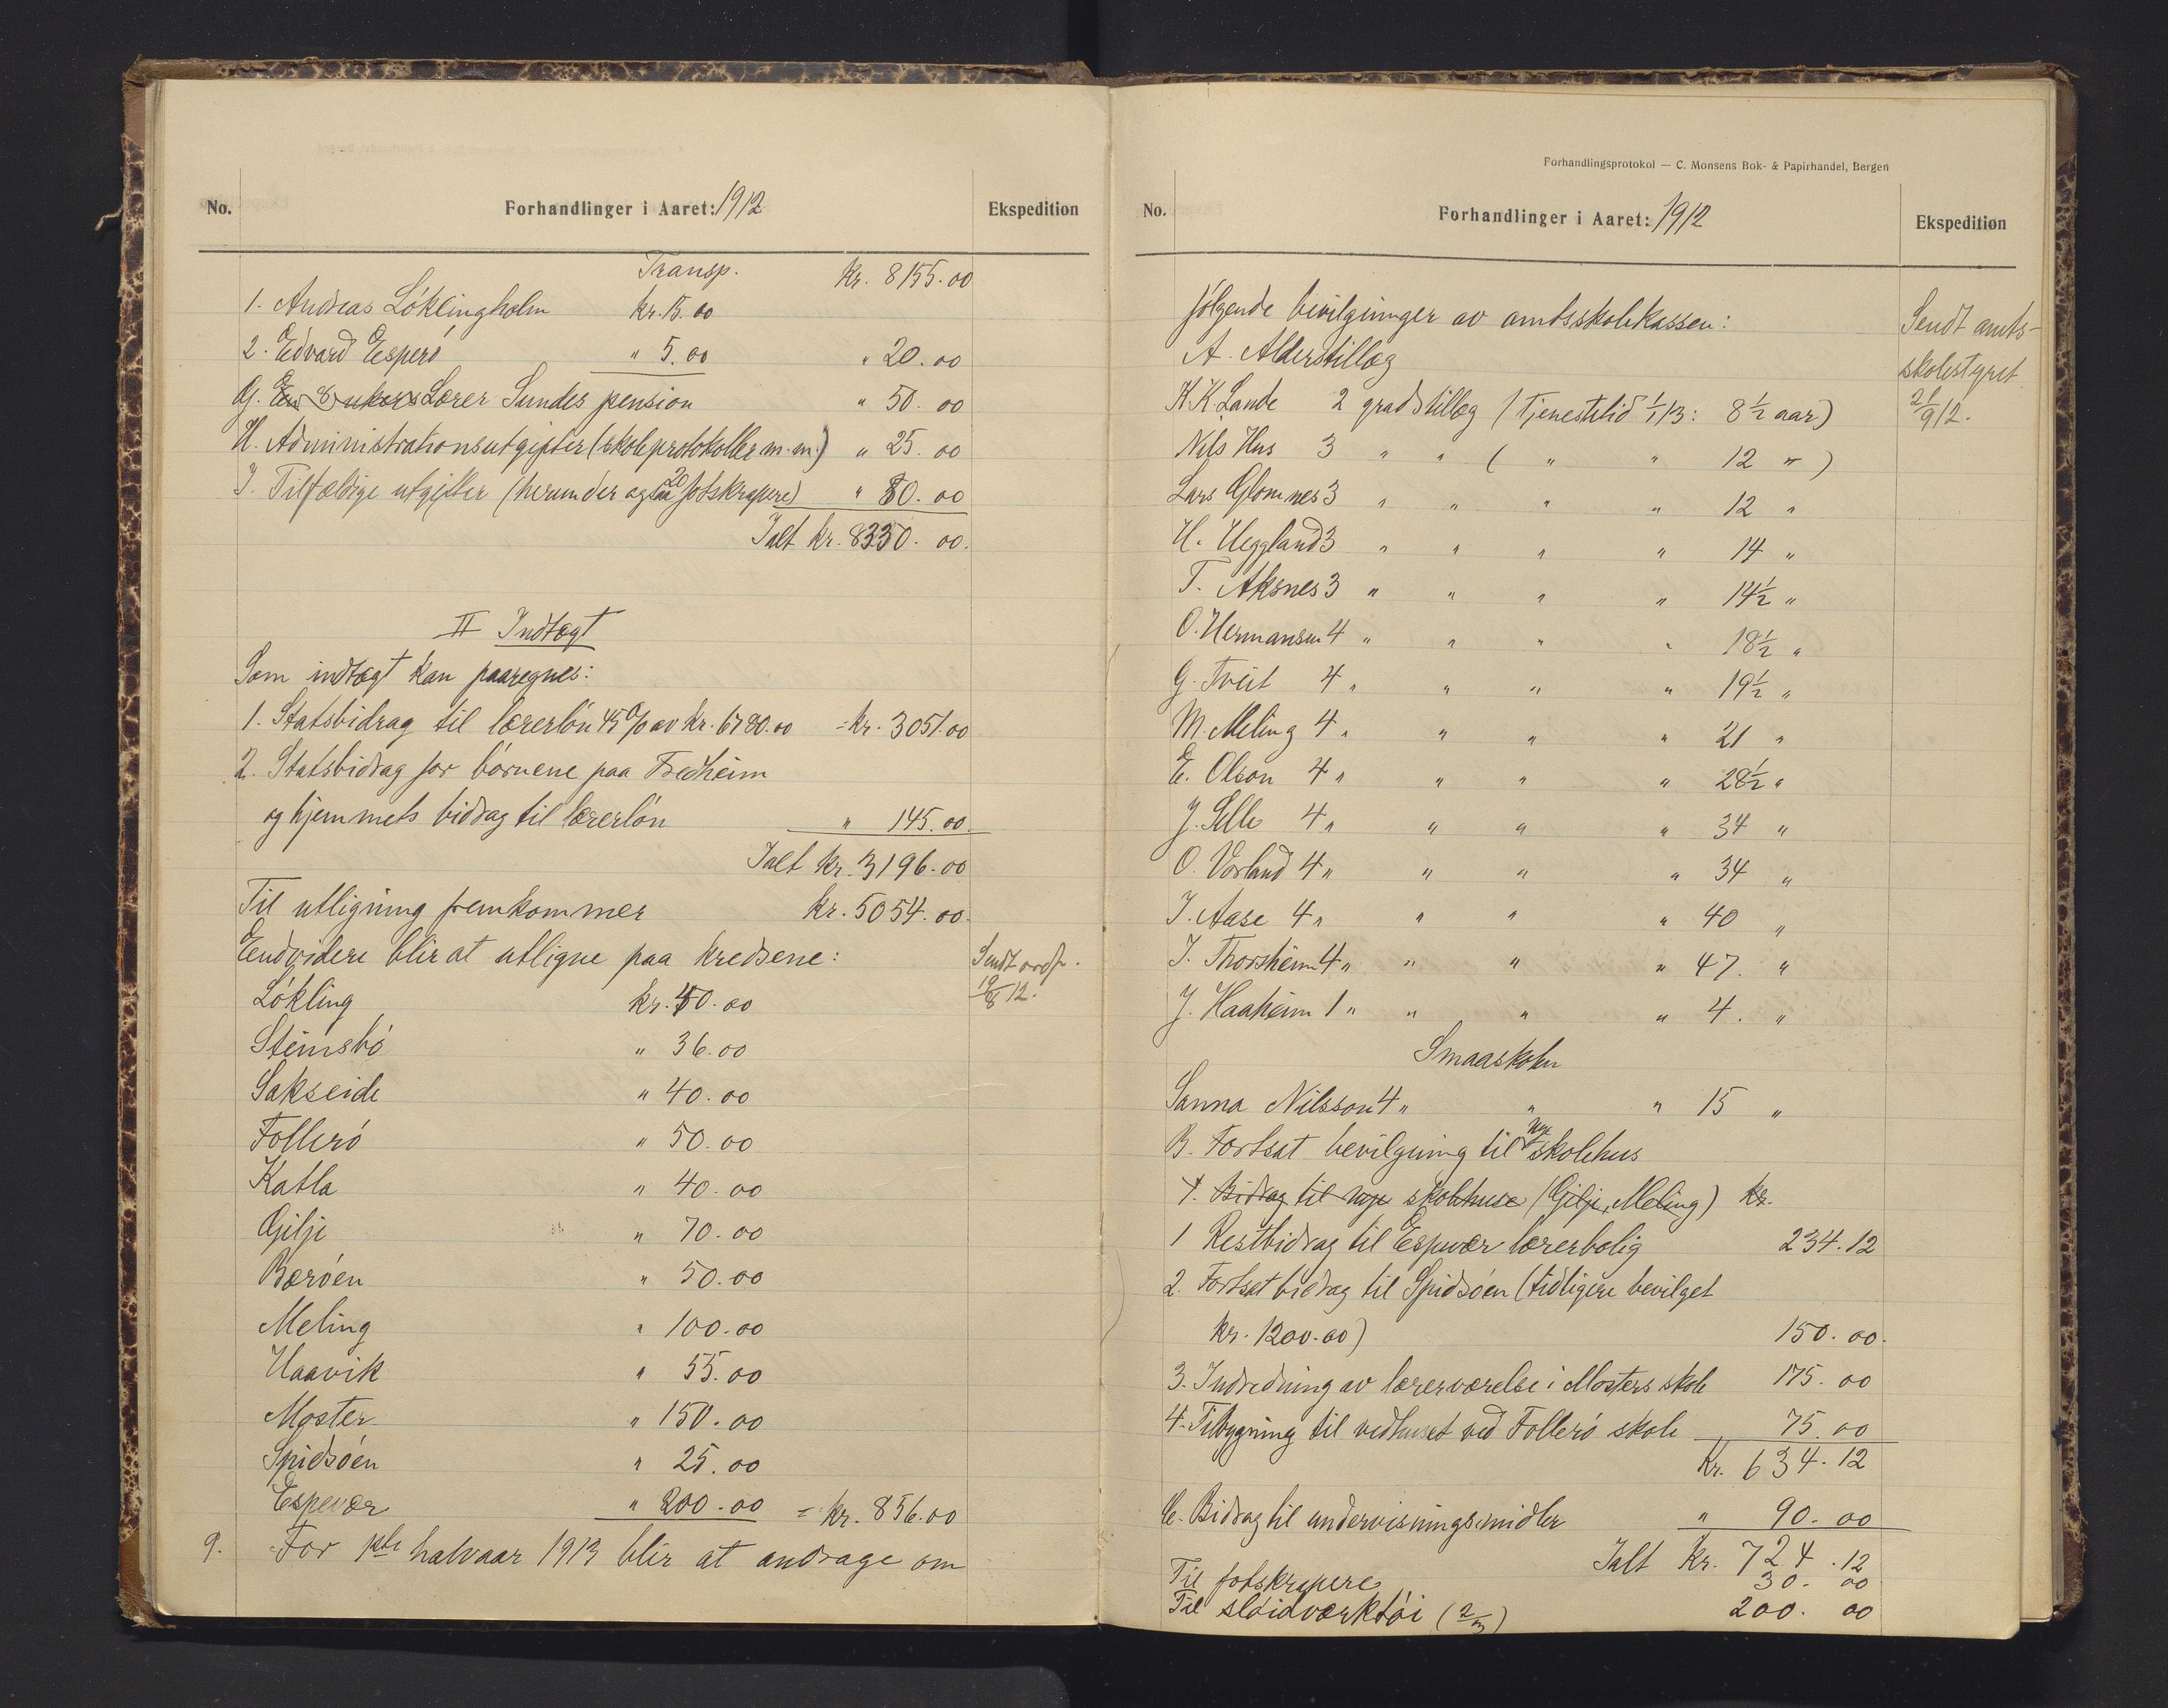 No.
Forhandlinger i Aaret: 1912
Ekspedition
Transp. Kr. 8155.00
1. Andreas Löklingholm kr. 15.00
2. Edvard Esperö " 5.00 " 20.00
G. En 8 ukers Lærer Sundes pension " 50.00
H. Administrationsutgifter (skoleprotokoller m.m.) " 25.00
I. Tilfældige utgifter (herunder ogsaa 20 fotskrapere) " 80.00
Ialt kr. 8330.00.
II Indtægt
Som indtægt kan paaregnes:
1. Statsbidrag til lærerlön 45% av kr. 6780.00 = kr. 3051.00
2. Statsbidrag for börnene paa Fredheim
og hjemmets bidrag til lærerlön " 145.00.
Ialt kr. 3196.00
Til utligning fremkommer kr. 5054.00.
Endvidere blir at utligne paa kredsene:
Sendt ordf.
19/8 12.
Lökling kr. 40.00
Steinsbö " 36.00
Sakseide " 40.00
Follerö " 50.00
Katla " 40.00
Gilje " 70.00
Bæröen " 50.00
Meling " 100.00
Haavik " 55.00
Moster " 150.00
Spidsöen " 25.00
Espevær " 200.00 = kr. 856.00
9. For 1ste halvaar 1913 blir at andrage om
Forhandlingsprotokol — C. Monsens Bok- & Papirhandel, Bergen
No.
Forhandlinger i Aaret: 1912
Ekspedition
følgende bevilgninger av amtsskolekassen:
Sendt amts-
skolestyret
21/9 12.
A. Alderstillæg
K.K. Lande 2 gradstillæg (Tjenestetid 1/1 13: 8 1/2 aar)
Nils Hus 3 " " ( " " 12 " )
Lars Glomnes 3 " " " " 12 "
H. Heggland 3 " " " " 14 "
T. Aksnes 3 " " " " 14 1/2 "
O. Hermansen 4 " " " " 18 1/2 "
G. Tveit 4 " " " " 19 1/2 "
M. Meling 4 " " " " 21 "
E. Olson 4 " " " " 28 1/2 "
J. Selle 4 " " " " 34 "
O. Vorland 4 " " " " 34 "
J. Aase 4 " " " " 40 "
J. Thorsheim 4 " " " " 47. "
J. Haaheim 1 " " " " 4. "
Smaaskolen
Sanna Nilsson 4 " " " 15 "
B. Fortsat bevilgning til nye skolehus
1. Bidrag til nye skolehuse (Gilje, Meling) kr.
1 Restbidrag til Espevær lærerbolig 234.12
2. Fortsat bidrag til Spidsöen (tidligere bevilget
kr. 1200.00) 150.00.
3. Indredning av lærerværelse i Mosters skole 175.00
4. Tilbygning til vedhuset ved Follerö skole 75.00
Kr. 634.12
C. Bidrag til undervisningsmidler " 90.00
Ialt Kr. 724.12
Til fotskrapere 30.00
Til slöidværktöi (2/3) 200.00